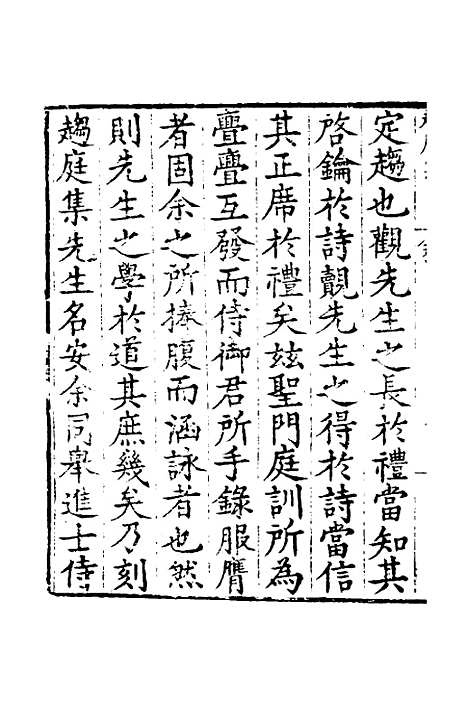 定趨也觀先生之長於禮當知其
啓鑰於詩覿先生之得於詩當信
其正席於禮矣玆聖門庭訓所為
亹亹互發而侍御君所手錄服膺
者固余之所捧腹而涵詠者也然
則先生之學於道其庶幾矣乃刻
趨庭集先生名安余同舉進士侍